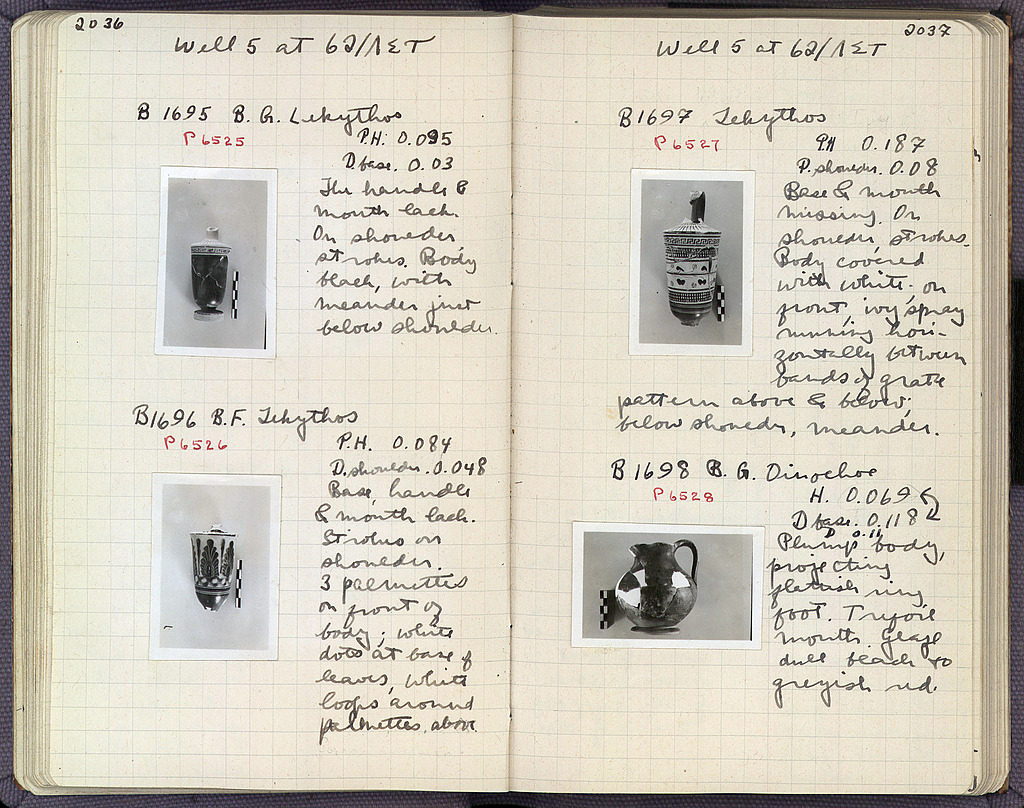 2036
Well 5 at 62/ΛΣΤ
B 1695 B.G. Lekythos
P 6525
P.H. 0.095
D. base. 0.03
The handle &
mouth lack.
On shoulder,
strokes. Body
black, with
meander just
below shoulder.
B1696 B.F. Lekythos
P 6526
P.H. 0.084
D. shoulder. 0.048
Base, handle
& mouth lack.
Strokes on
shoulder.
3 palmettes
on front of
body; white
dots at base of
leaves, white
loops around
palmettes, above.
2037
Well 5 at 62/ΛΣΤ
B1697 Lekythos
P 6527
PH 0.187
D. shoulder. 0.08
Base & mouth
missing. On
shoulder, strokes.
Body covered
with white - on
front, ivy spray
running hori-
zontally between
bands of grate
pattern above & below;
below shoulder, meander.
B1698 B.G. Oinochoe
P 6528
H. 0.069
D base. 0.118
D 0.11
Plump body,
projecting
flattish ring
foot. Trefoil
mouth. Glaze
dull black to
greyish red.